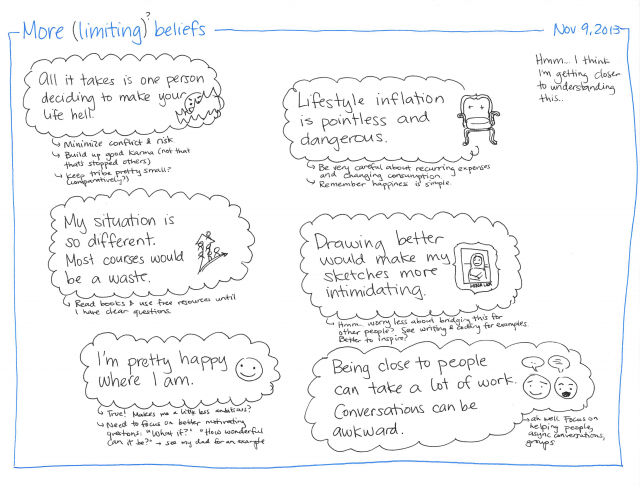 More (limiting)? beliefs
Nov 9, 2013
Hmm... I think
I'm getting closer
to understanding
this..
All it takes is one person
deciding to make your
life hell.
↳ Minimize conflict & risk
↳ Build up good karma (not that
that's stopped others)
↳ Keep tribe pretty small?
(comparatively?)
Lifestyle inflation
is pointless and
dangerous.
↳ Be very careful about recurring expenses
and changing consumption.
↳ Remember happiness is simple.
My situation is
so different.
Most courses would
be a waste.
↳ Read books & use free resources until
I have clear questions.
Drawing better
would make my
sketches more
intimidating.
↳ Hmm... worry less about bridging this for
other people? See writing & coding for examples.
Better to inspire?
I'm pretty happy
where I am.
↳ True! Makes me a little less ambitious?
↳ Need to focus on better motivating
questions: "What if?" "How wonderful
can it be?" → see my dad for an example
Being close to people
can take a lot of work.
Conversations can be
awkward.
↳ ah well. Focus on
helping people,
async conversations,
groups